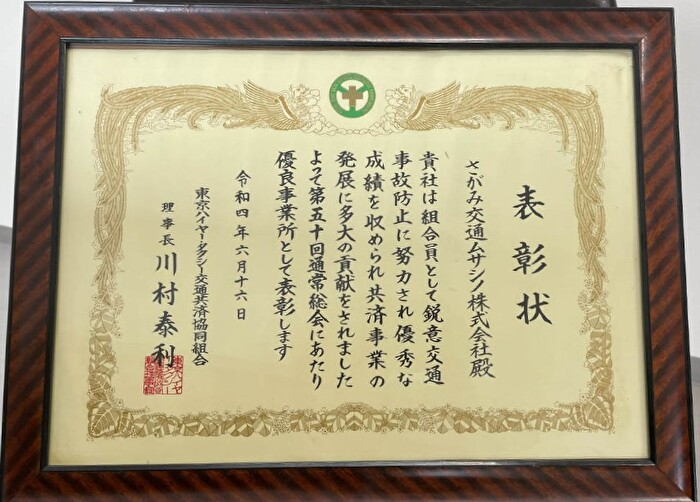 表彰状
さがみ交通ムサシノ株式会社殿
貴社は組合員として鋭意交通
事故防止に努力され優秀な
成績を収められ共済事業の
発展に多大の貢献をされました
よって第五十回通常総会にあたり
優良事業所として表彰します
令和四年六月十六日
東京ハイヤー・タクシー交通共済協同組合
理事長 川村泰利